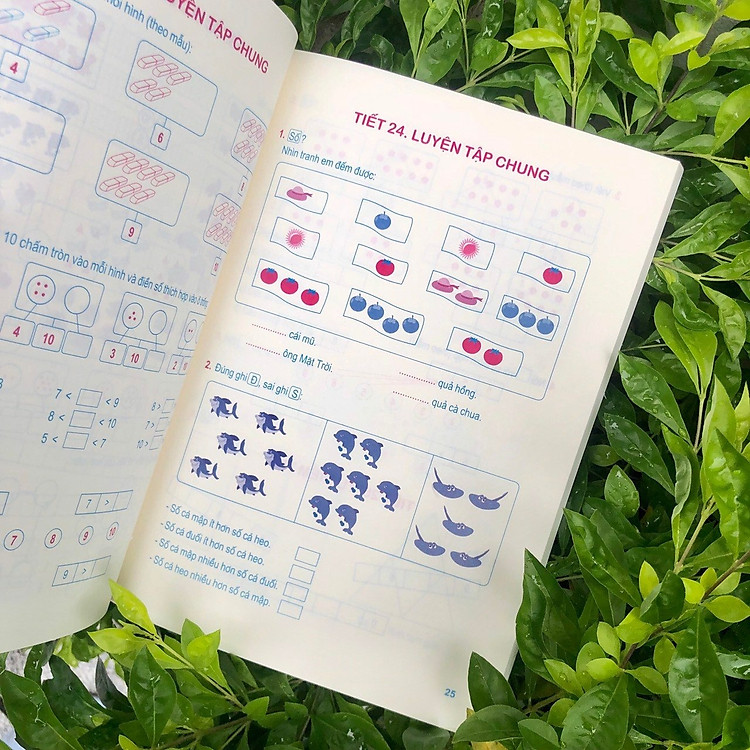 LUYỆN TẬP CHUNG
mỗi hình (theo mẫu):
4
6
9
10 chấm tròn vào mỗi hình và điền số thích hợp vào ô trống
4 10
3 10
2
7 < < 9
8 < < 10
5 < < 7
8 >
7 >
10 >
7 >
7 8 9
9 >
TIẾT 24. LUYỆN TẬP CHUNG
1. Số ?
Nhìn tranh em đếm được:
............ cái mũ.
............ ông Mặt Trời.
............ quả hồng.
............ quả cà chua.
2. Đúng ghi Đ, sai ghi S:
- Số cá mập ít hơn số cá heo.
- Số cá đuối ít hơn số cá heo.
- Số cá mập nhiều hơn số cá đuối.
- Số cá heo nhiều hơn số cá mập.
25